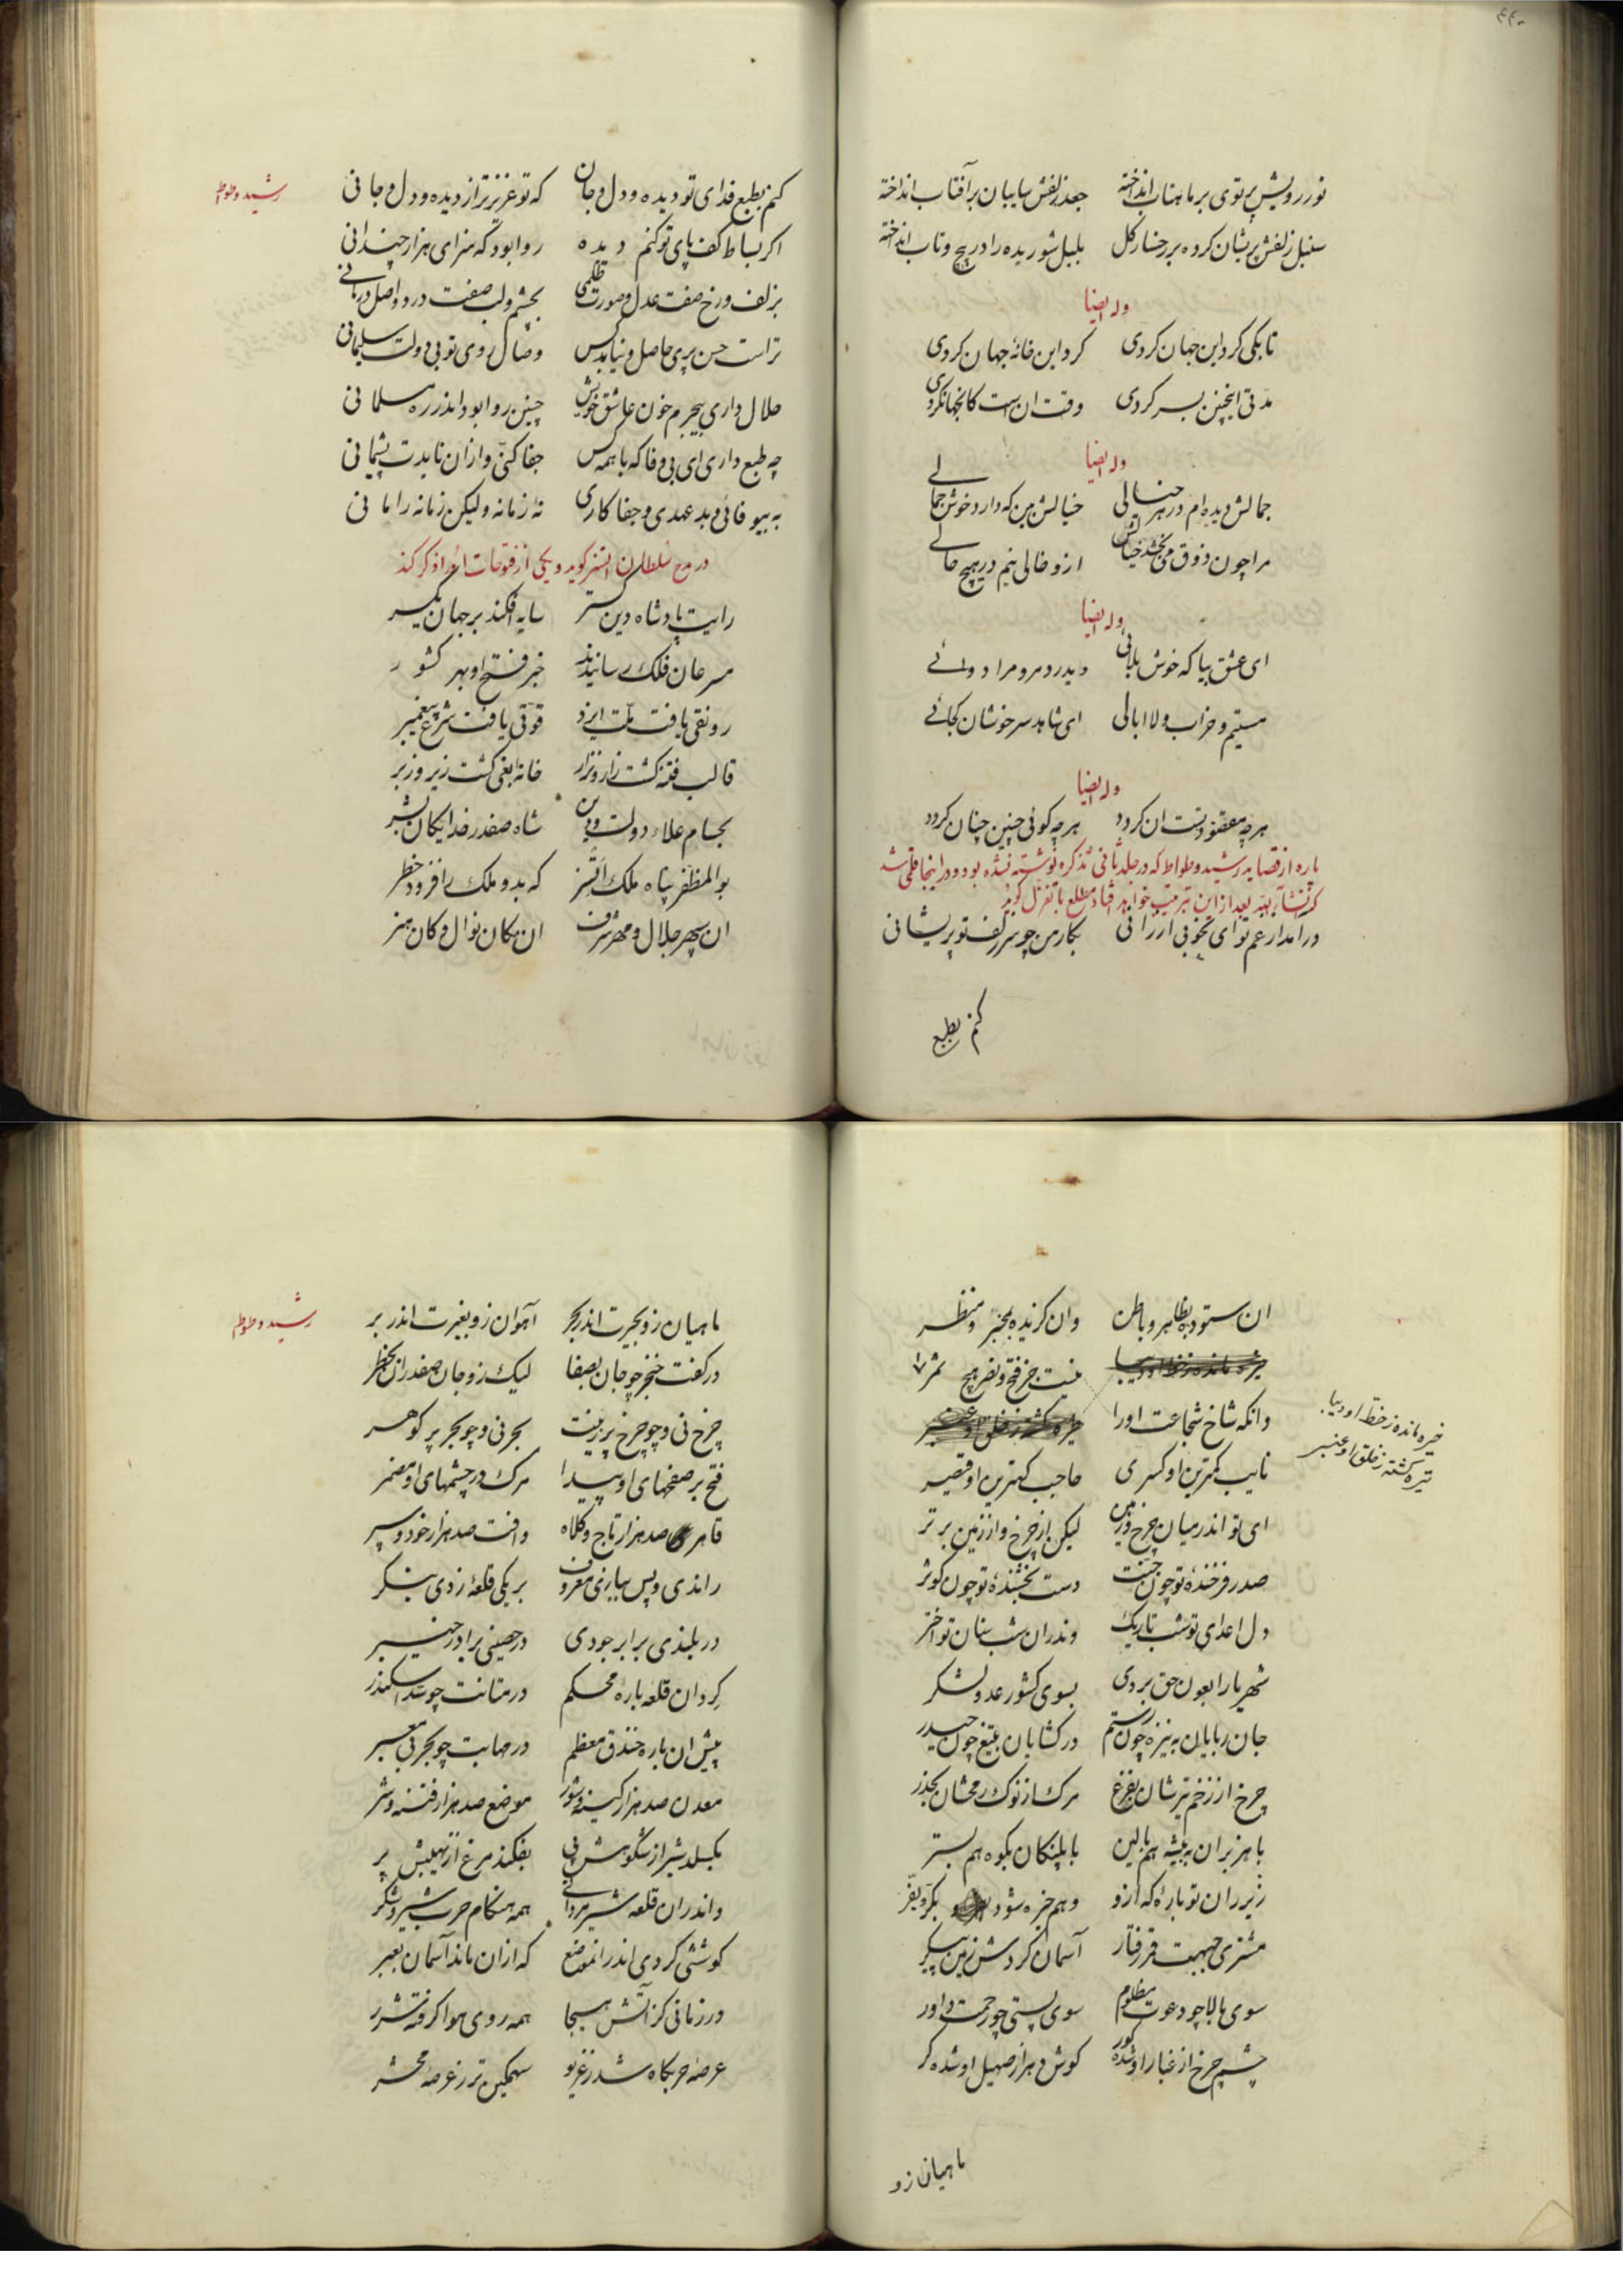 ۴۴۰
نور رویش پرتوی بر ماهتاب انداخته جعد زلفش سایبان بر آفتاب انداخته
سنبل زلفش پریشان کرده بر رخسار کل بلبل شوریده را در پیچ و تاب انداخته
وله ایضا
تا بکی کرد این جهان کردی کرد این خانهٔ جهان کردی
مدتی اینچنین بسر کردی وقت ان است کانچهان کردی
وله ایضا
جمالش دیده ام در هر خیالی خیالش بین که دارد خوش جمالے
مرا چون ذوق می بخشد خیالش ازو خالی نیم در هیچ حالے
وله ایضا
ای عشق بیا که خوش بلائی دیدرد مرو مرا دوائے
مستیم و خراب ولا ابالی ای شاهد سرخوشان کجائے
وله ایضا
هرچه مقصود تست ان کردد هرچه کوئی چنین چنان کردد
پاره از قصاید رشید وطواط که در جلد ثانی تذکره نوشته نشده بود و در اینجا قلمی شد
کرنشآء بهتر بعد از این ترتیب خواهد افتاد مطلع با تغزل کوید
در امد از غم تو ای بخوبی ارزانی بکار من چو سر زلف تو پریشانی
کنم بطبع
رشید وطواط
کنم بطبع فدای تو دیده و دل و جان که تو عزیزتر از دیده و دل و جانی
اکر بساط کف پای تو کنم دیده روا بود که سزای هزار چندانی
بزلف و رخ صفت عدل و صورت ظلمی بچشم و لب صفت درد و اصل درمانے
تراست حسن پری حاصل و نیابد کس وصال روی تو بی دولت سلیمانی
حلال داری بیجرم خون عاشق خویش چنین روا بود اندر ره مسلمانی
چه طبع داری ای بی وفا که با همه کس جفا کنی و ازان نایدت پشیمانی
به بیوفائی و بدعهدی و جفاکاری نهٔ زمانه ولیکن زمانه را مانی
در مدح سلطان اتسز کوید و یکی از فتوحات او را ذکر کند
رایت پادشاه دین کستر سایه افکند بر جهان یکسر
مسرعان فلک رسانیدند خبر فتح او بهر کشور
رونقی یافت ملت ایزد قوتی یافت شرع پیغمبر
قالب فتنه کشت زار و نزار خانهٔ بغی کشت زیر و زبر
بحسام علاء دولت و دین شاه صفدر خدایکان بشر
بوالمظفر پناه ملک اتسز که بدو ملک را فزود خطر
ان سپهر جلال و مهر شرف ان مکان نوال و کان هنر
ان ستوده بظاهر و باطن وان کزیده بمخبر و منظر
خیره مانده ز خط او دیبا نیست جز فتح و نصر هیچ ثمر
وانکه شاخ شجاعت اورا تیره کشته ز خلق او عنبر
خیره مانده ز خط او دیبا
تیره کشته ز خلق او عنبر
نایب کمترین او کسری حاجب کهترین او قیصر
ای تو اندر میان چرخ و زمین لیکن از چرخ و از زمین برتر
صدر فرخندهٔ تو چون جنت دست بخشندهٔ تو چون کوثر
دل اعدای تو شب تاریک وندران شب سنان تو اختر
شهریارا بعون حق بردی بسوی کشور عدو لشکر
جان ربایان به نیزه چون رستم در کشایان بتیغ چون حیدر
چرخ از زخم تیرشان بفزع مرک از نوک رمحشان بحذر
با هزبران به بیشه هم بالین با پلنکان بکوه هم بستر
زیر ران تو بارهٔ که ازو وهم خیره شود بکر و بفر
مشتری جبهت قمر رفتار آسمان کردش زمین پیکر
سوی بالا چو دعوت مظلوم سوی پستی چو رحمت داور
چشم چرخ از غبار او شده کور کوش دهر از صهیل او شده کر
ماهیان زو
رشید وطواط
ماهیان زو بحیرت اندر بحر آهوان زو بغیرت اندر بر
در کفت خنجر چو جان بصفا لیک زو جان صفدران بخطر
چرخ نی و چو چرخ پر زینت بحر نی و چو بحر پر کوهر
فتح بر صفحهای او پیدا مرک در چشمهای او مضمر
قاهر صد هزار تاج و کلاه وافت صد هزار خود و سپر
راندی و پس بیاری معروف بر یکی قلعهٔ زدی بنکر
در بلندی برابر جودی در حصینی برادر خیبر
کرد ان قلعه بارهٔ محکم در متانت چو سد اسکندر
پیش ان باره خندق معظم در مهابت چو بحر بی معبر
معدن صد هزار کینه و شور موضع صد هزار فتنه و شر
بکسلد شیر از شکوهش پی بفکند مرغ از نهیبش پر
واندران قلعه شیر مردانے همه هنکام حرب شیر شکر
کوششی کردی اندر انموضع که ازان ماند آسمان بعبر
در زمانی کز آتش هیجا همه روی هوا کرفته شرر
عرصهٔ حربکاه شد ز غریو سهمکین تر ز عرصهٔ محشر